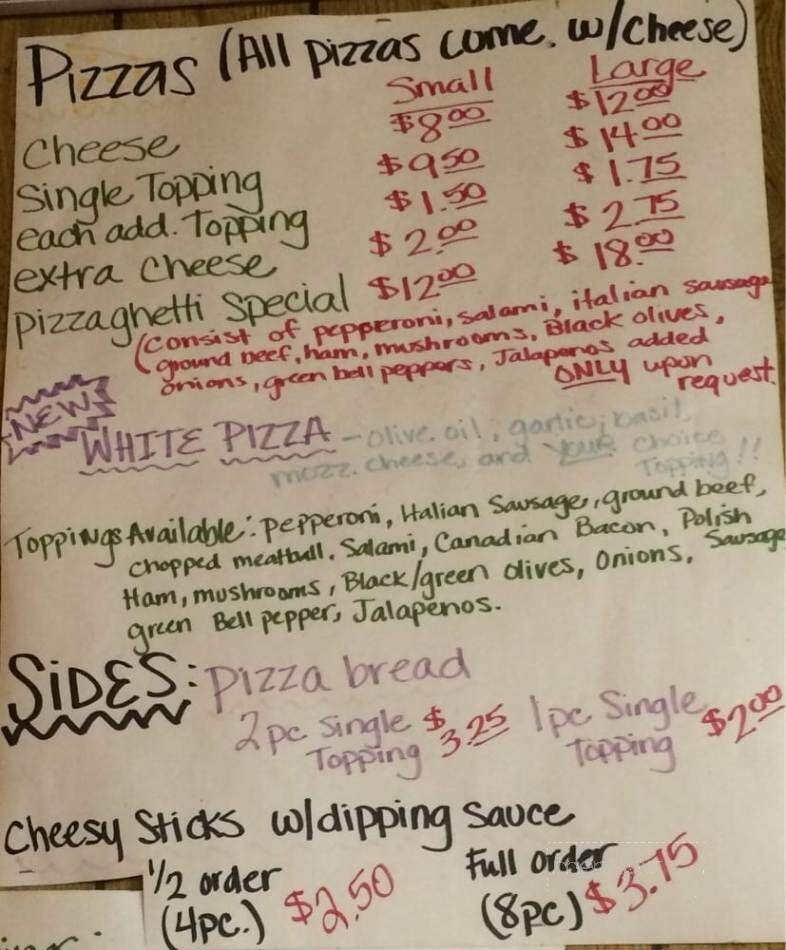 Pizzas (All pizzas come. w/cheese)
Small Large
Cheese $8.00 $12.00
Single Topping $9.50 $14.00
each add. Topping $1.50 $1.75
extra cheese $2.00 $2.75
pizzaghetti special $12.00 $18.00
(consist of pepperoni, salami, italian sausage
ground beef, ham, mushrooms, Black olives,
onions, green bell peppers, Jalapenos added
ONLY upon
request.
NEW
WHITE PIZZA - olive oil, garlic, basil,
mozz. cheese, and your choice
Topping!!
Toppings Available: pepperoni, Italian Sausage, ground beef,
chopped meatball. Salami, Canadian Bacon, Polish
Ham, mushrooms, Black/green olives, Onions, Sausage
green Bell pepper, Jalapenos.
SIDES: pizza bread
2pc single $3.25 1pc Single $2.00
Topping Topping
Cheesy Sticks w/dipping sauce
1/2 order Full order
(4pc.) $2.50 (8pc) $3.75